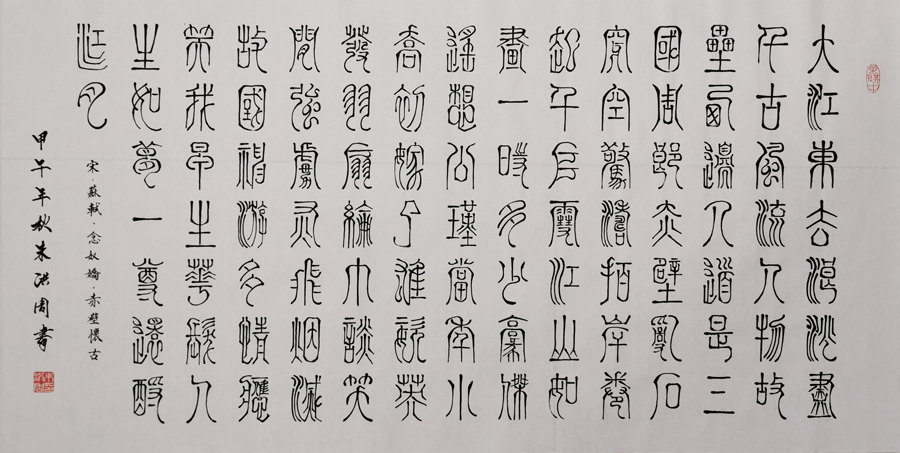 大江東去浪淘盡
千古風流人物故
壘西邊人道是三
國周郎赤壁亂石
穿空驚濤拍岸卷
起千層雪江山如
畫一時多少豪傑
遙想公瑾當年小
喬初嫁了雄姿英
發羽扇綸巾談笑
間強虜灰飛烟滅
故國神游多情應
笑我早生華髮人
生如夢一尊還酹
江月
宋·蘇軾·念奴嬌·赤壁懷古
甲午年秋朱洪周書